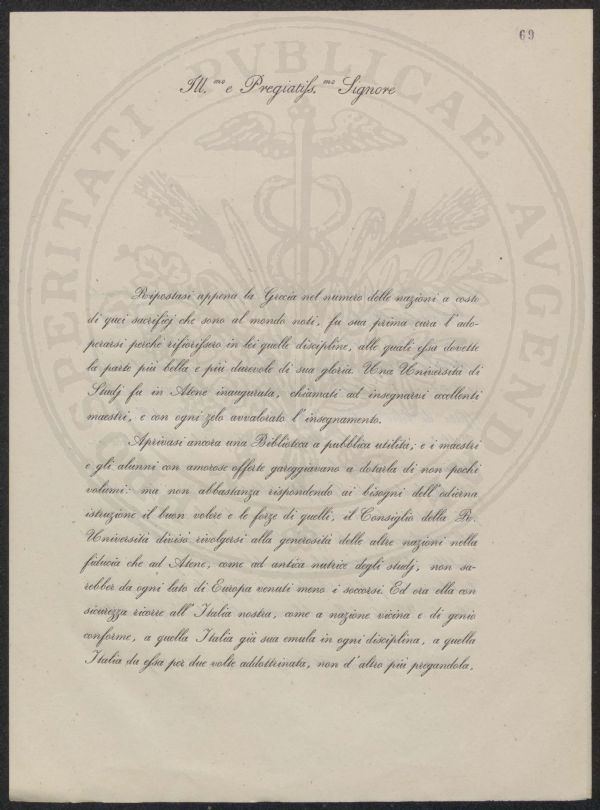 69
Ill.mo e Pregiatiſs.mo Signore
Ripostasi appena la Grecia nel numero delle nazioni a costo
di quei sacrifizj che sono al mondo noti, fu sua prima cura l'ado-
perarsi perchè rifioriſsero in lei quelle discipline, alle quali eſsa dovette
la parte più bella e più durevole di sua gloria. Una Università di
Studj fu in Atene inaugurata, chiamati ad insegnarvi eccellenti
maestri, e con ogni zelo avvalorato l'insegnamento.
Aprivasi ancora una Biblioteca a pubblica utilità; e i maestri
e gli alunni con amorose offerte gareggiavano a dotarla di non pochi
volumi: ma non abbastanza rispondendo ai bisogni dell'odierna
istruzione il buon volere e le forze di quelli, il Consiglio della
Università divisò rivolgersi alla generosità delle altre nazioni nella
fiducia che ad Atene, come ad antica nutrice degli studj, non sa-
rebber da ogni lato di Europa venuti meno i soccorsi. Ed ora ella con
sicurezza ricorre all'Italia nostra, come a nazione vicina e di genio
conforme, a quella Italia già sua emula in ogni disciplina, a quella
Italia da eſsa per due volte addottrinata, non d'altro più pregandola,
PROSPERITATI PVBLICAE AVGEND